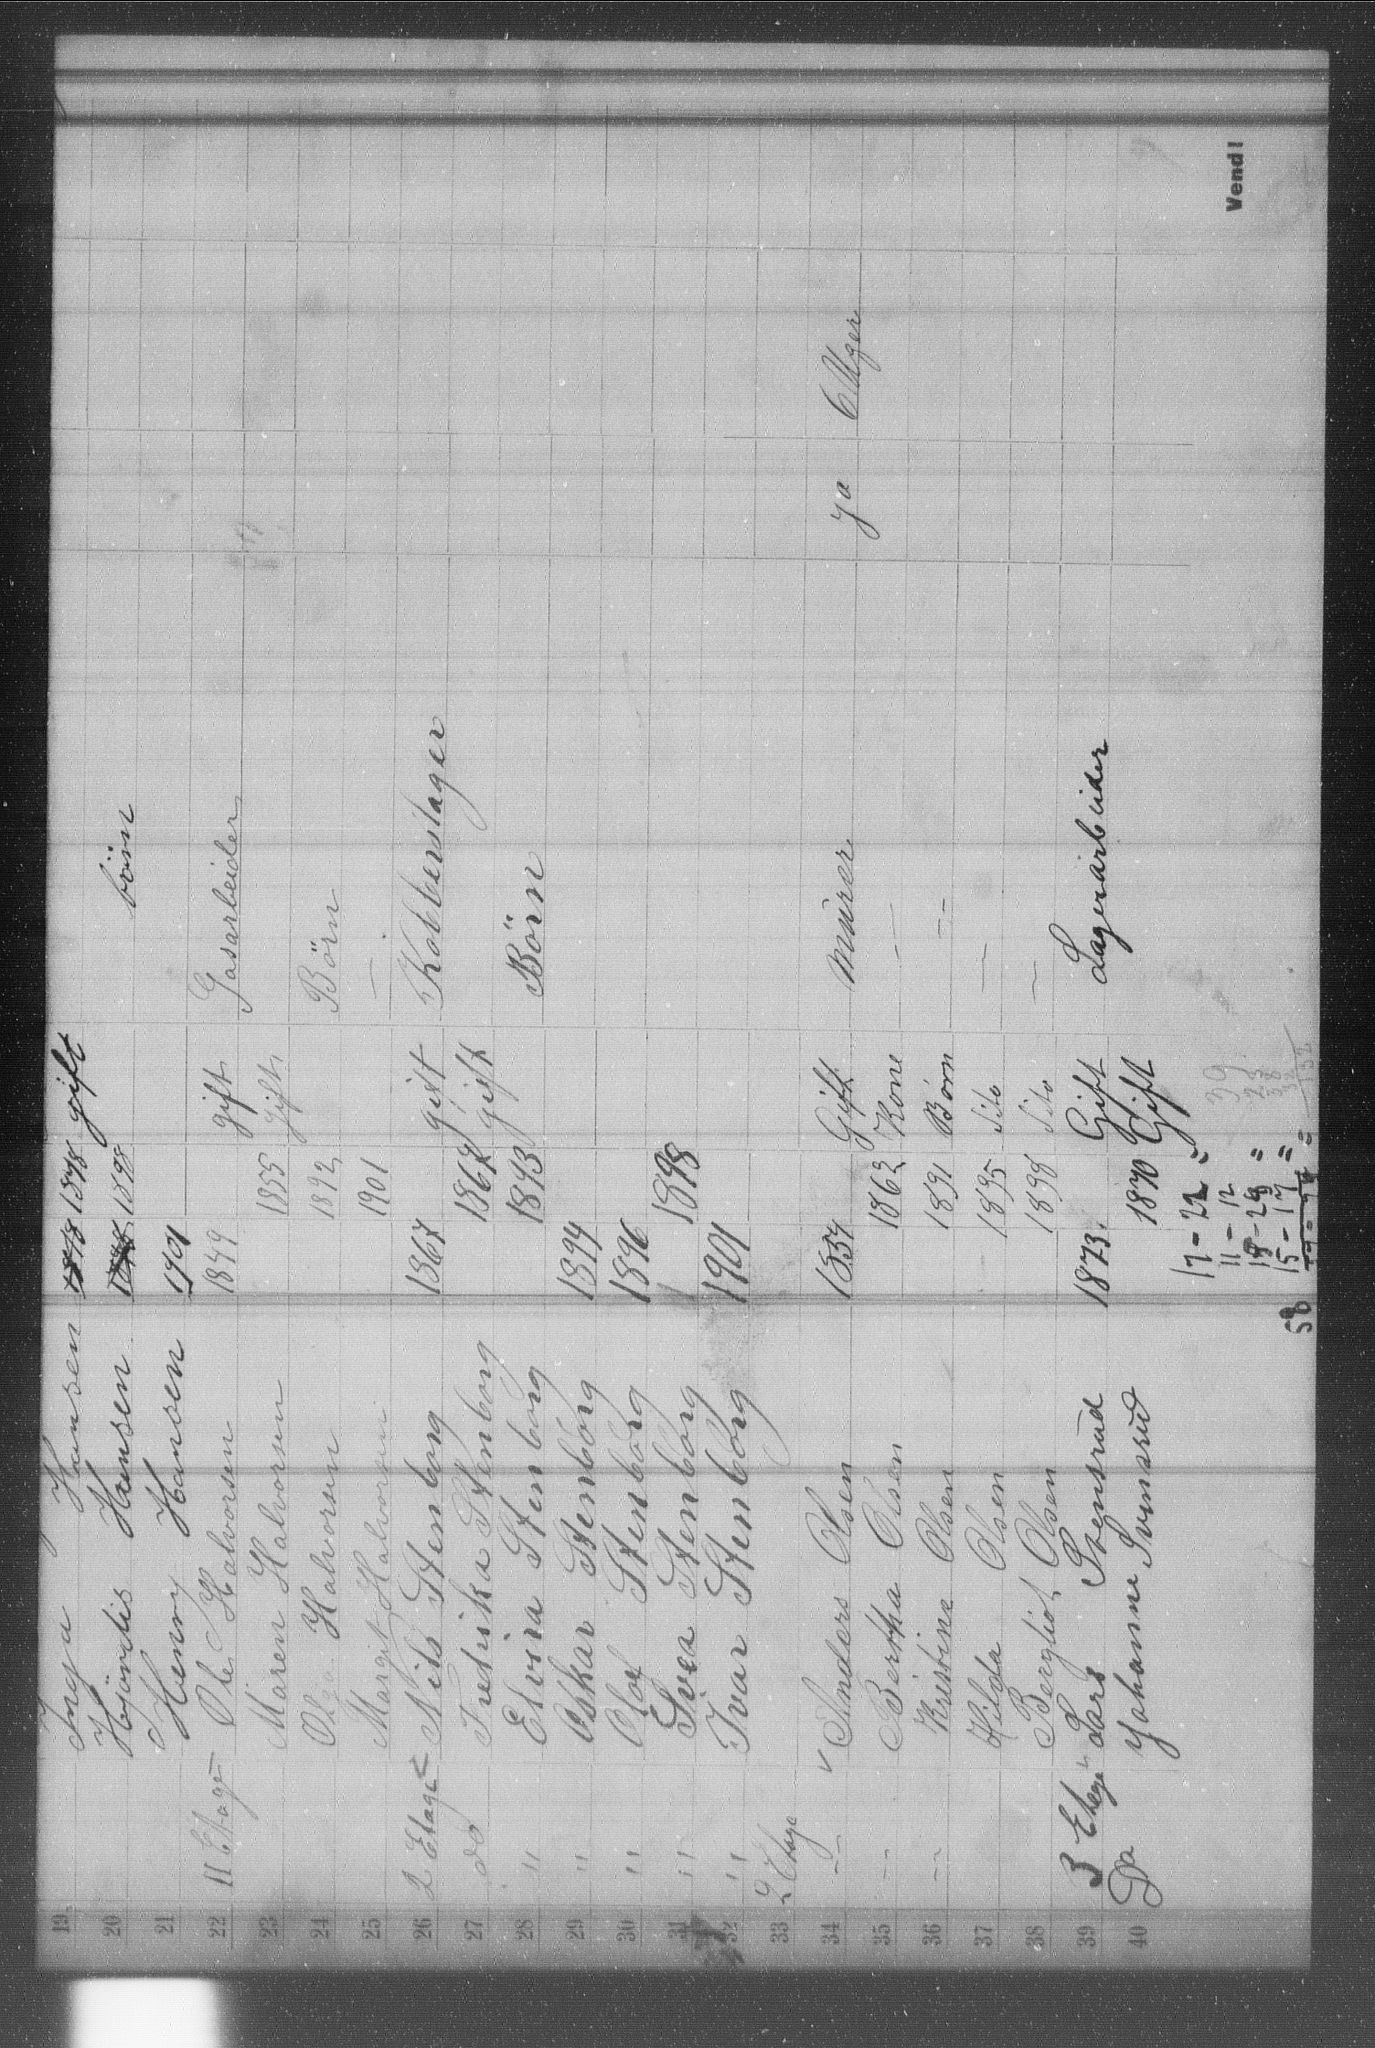 19 Inga Hansen 1878 1878 gift
20 Hjördis Hansen 1898 1898 börn
21 Henny Hansen 1901
22 II Etage Ole Halvorsen 1849 gift Gasarbeider
23 Maren Halvorsen 1855 gift
24 Olga Halvorsen 1892 Börn
25 Margit Halvorsen 1901 —
26 2 Etage Nils Stenborg 1867 gift Kobberslager
27 do Fredrika Stenborg 1867 gift
28 " Elvira Stenborg 1893 Börn
29 " Oskar Stenborg 1894
30 " Olof Stenborg 1896
31 " Svea Stenborg 1898
32 " Ivar Stenborg 1901
33 2 Etage
34 — Anders Olsen Gift Murer ja 6 Uger
35 — Bertha Olsen 1862 Kone —
36 — Kristine Olsen 1891 Börn —
37 Hilda Olsen 1895 dito —
38 Bergliot Olsen 1898 dito —
39 3 Etage Lars Svensrud 1873 Gift Lagerarbeider
40 Da Johanne Svensrud 1870 Gift
17 - 22 =
11 - 12
15 - 17 =
58
Vend!